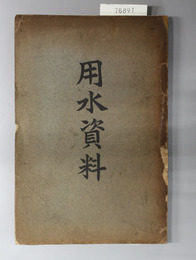 76897
用水資料